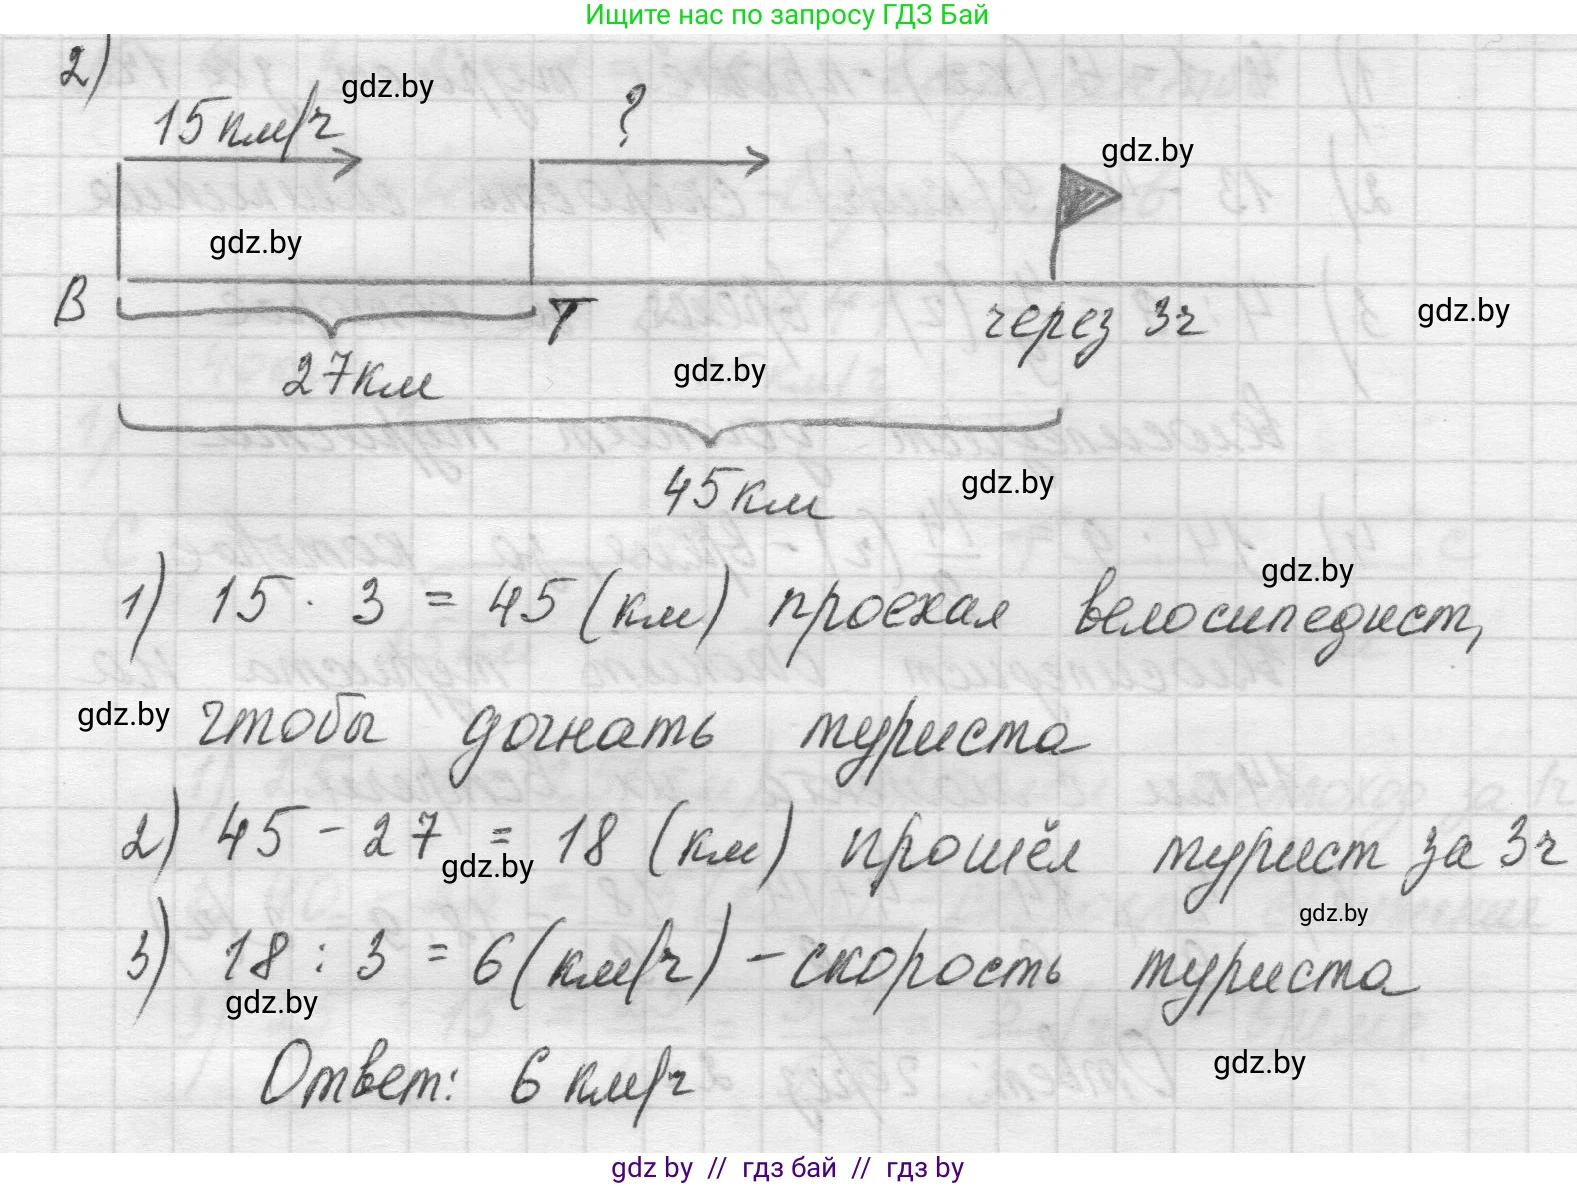 Ищите нас по запросу ГДЗ Бай
2)
15 км/ч
gdz.by
?
gdz.by
gdz.by
В
Т
через 3ч
gdz.by
27км
gdz.by
45км
gdz.by
gdz.by
1) 15 · 3 = 45 (км) проехал велосипедист,
gdz.by
чтобы догнать туриста
2) 45 - 27 = 18 (км) прошёл турист за 3ч
gdz.by
gdz.by
3) 18 : 3 = 6 (км/ч) - скорость туриста
gdz.by
Ответ: 6 км/ч
gdz.by
gdz by // гдз бай // гдз by